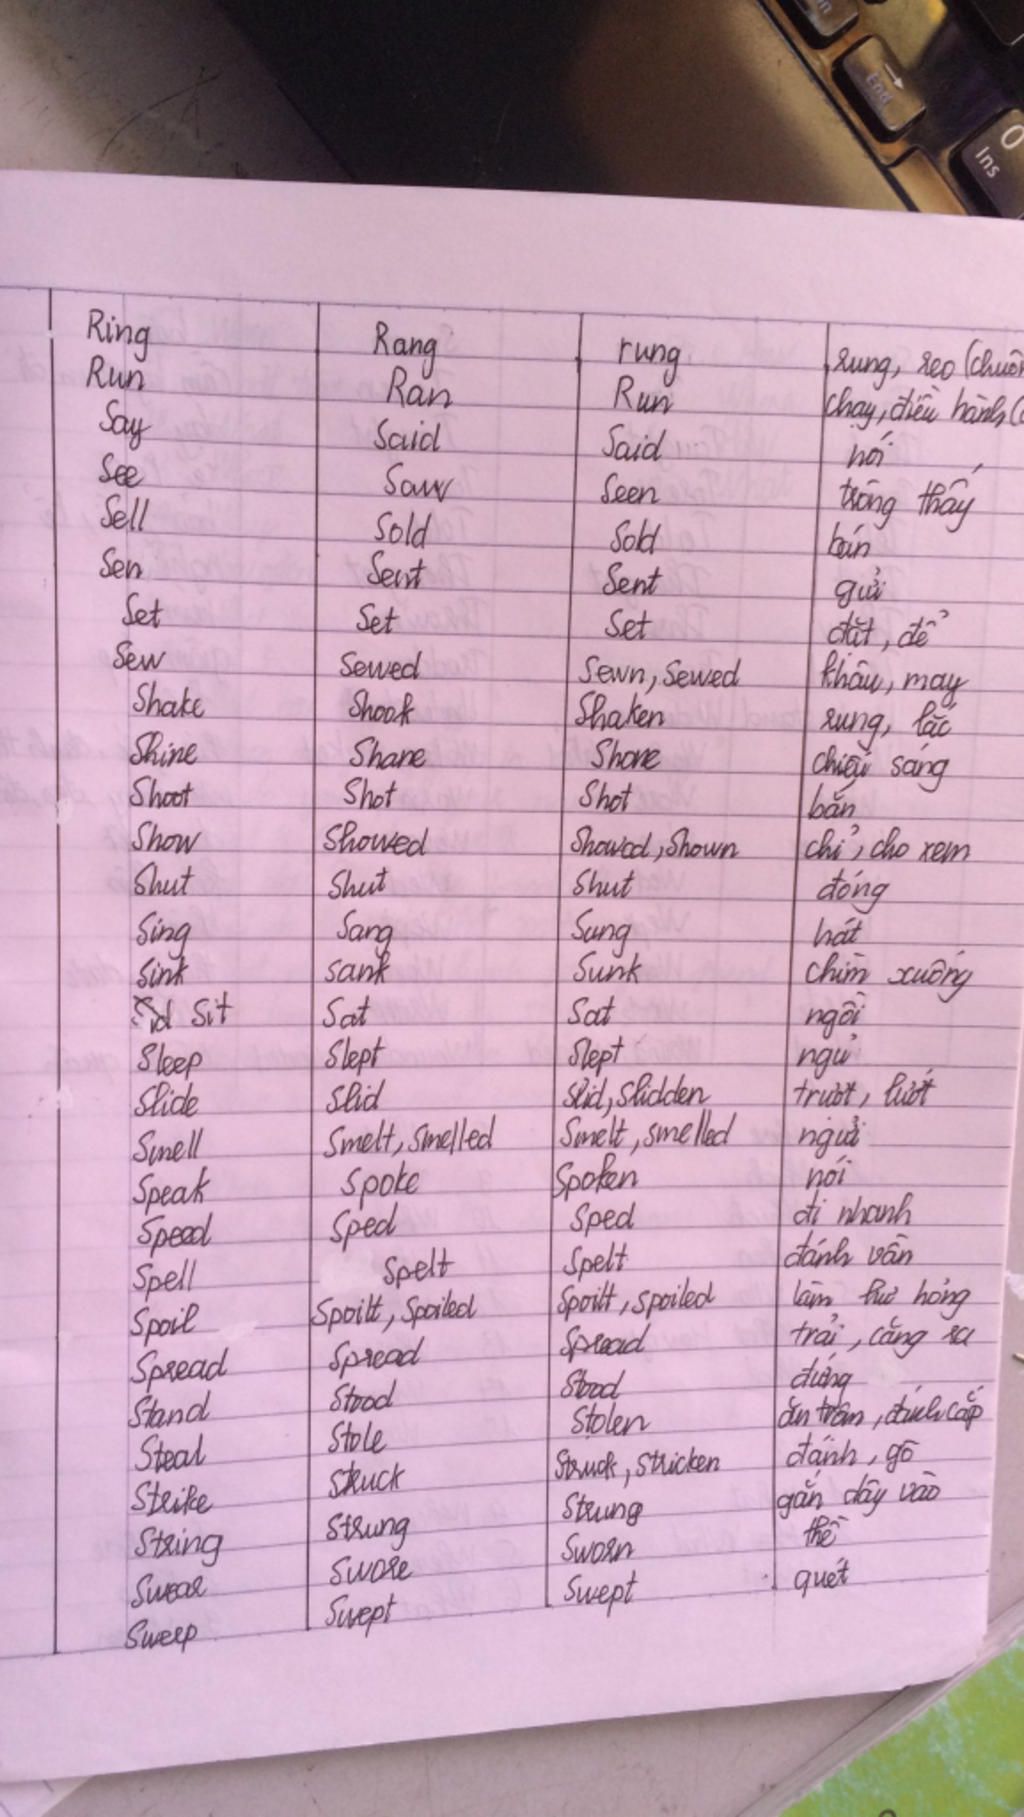 End
0
Ins
Ring Rang rung rung, reo (chuôn
Run Ran Run chạy, điều hành (
Say Said Said nói
See Saw Seen trông thấy
Sell Sold Sold bán
Sen Sent Sent gửi
Set Set Set đặt, để
Sew Sewed Sewn, Sewed khâu, may
Shake Shook Shaken rung, lắc
Shine Shone Shone chiếu sáng
Shoot Shot Shot bắn
Show Showed Showed, Shown chỉ, cho xem
Shut Shut Shut đóng
Sing Sang Sung hát
Sink sank Sunk chìm xuống
Sit Sat Sat ngồi
Sleep Slept Slept ngủ
Slide Slid Slid, Slidden trượt, lướt
Smell Smelt, Smelled Smelt, smelled ngửi
Speak Spoke Spoken nói
Speed Sped Sped đi nhanh
Spell Spelt Spelt đánh vần
Spoil Spoilt, Spoiled Spoilt, spoiled làm hư hỏng
Spread Spread Spread trải, căng ra
Stand Stood Stood đứng
Steal Stole Stolen ăn trộm, đánh cắp
Strike Struck Struck, stricken đánh, gõ
String Strung Strung gắn dây vào
Swear Swore Sworn thề
Sweep Swept Swept quét